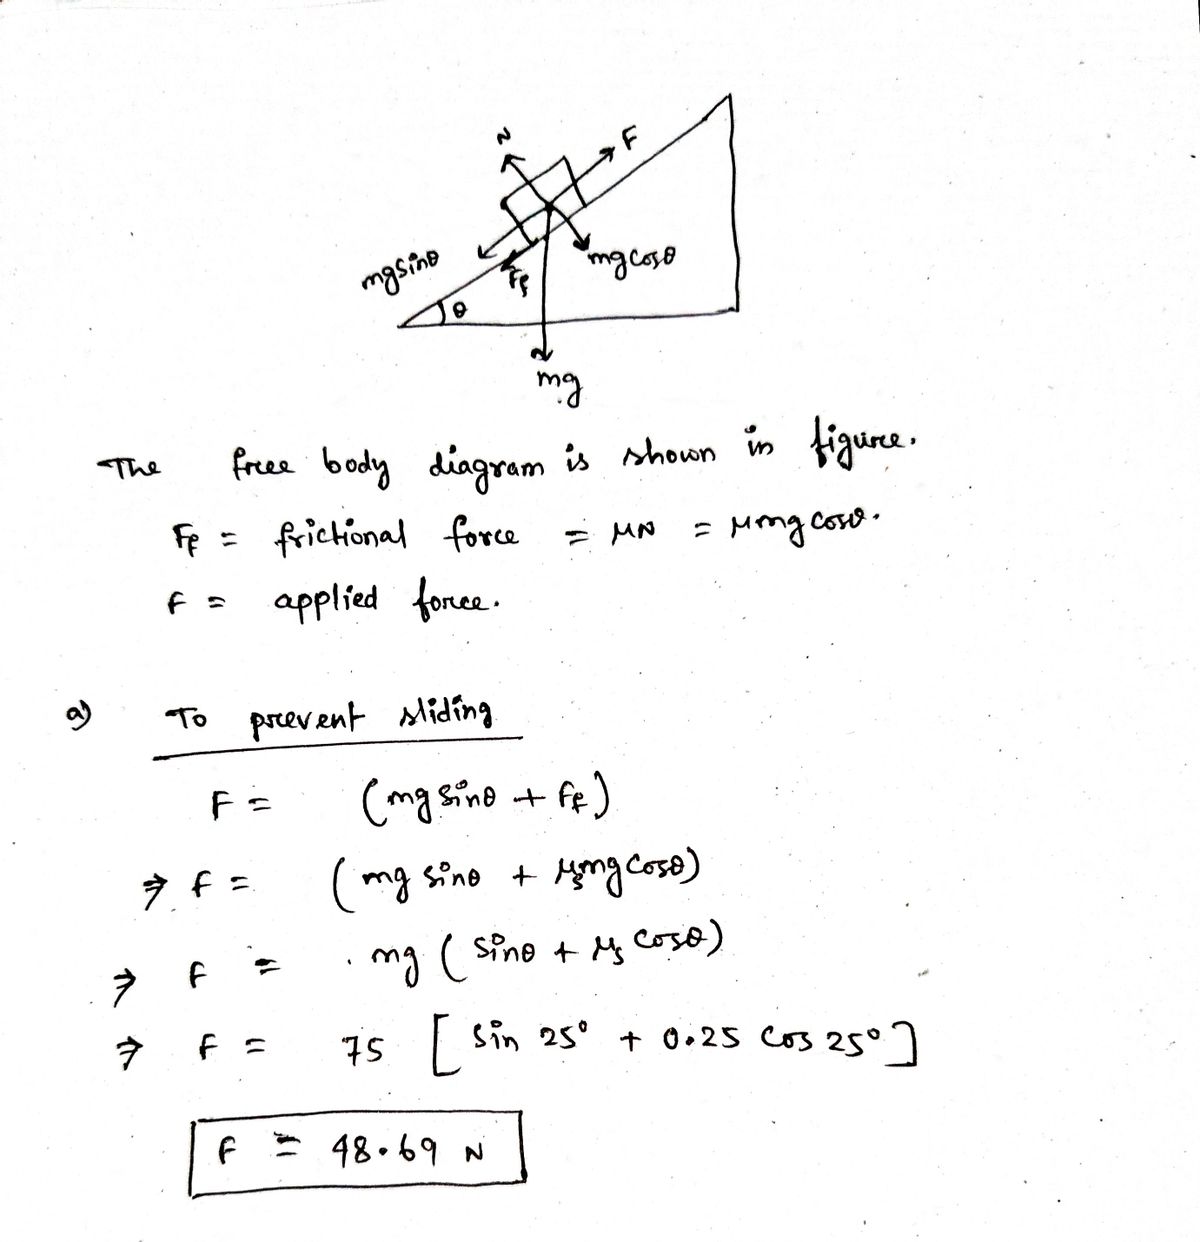 N
F
mgsinθ
mgcosθ
Ff
θ
mg
The free body diagram is shown in figure.
Ff = frictional force = μN = μmg cosθ.
F = applied force.
a) To prevent sliding
F = (mg sinθ + Ff)
⇒ F = (mg sinθ + μsmg cosθ)
⇒ F = mg ( sinθ + μs cosθ)
⇒ F = 75 [ sin 25° + 0.25 cos 25° ]
F = 48.69 N